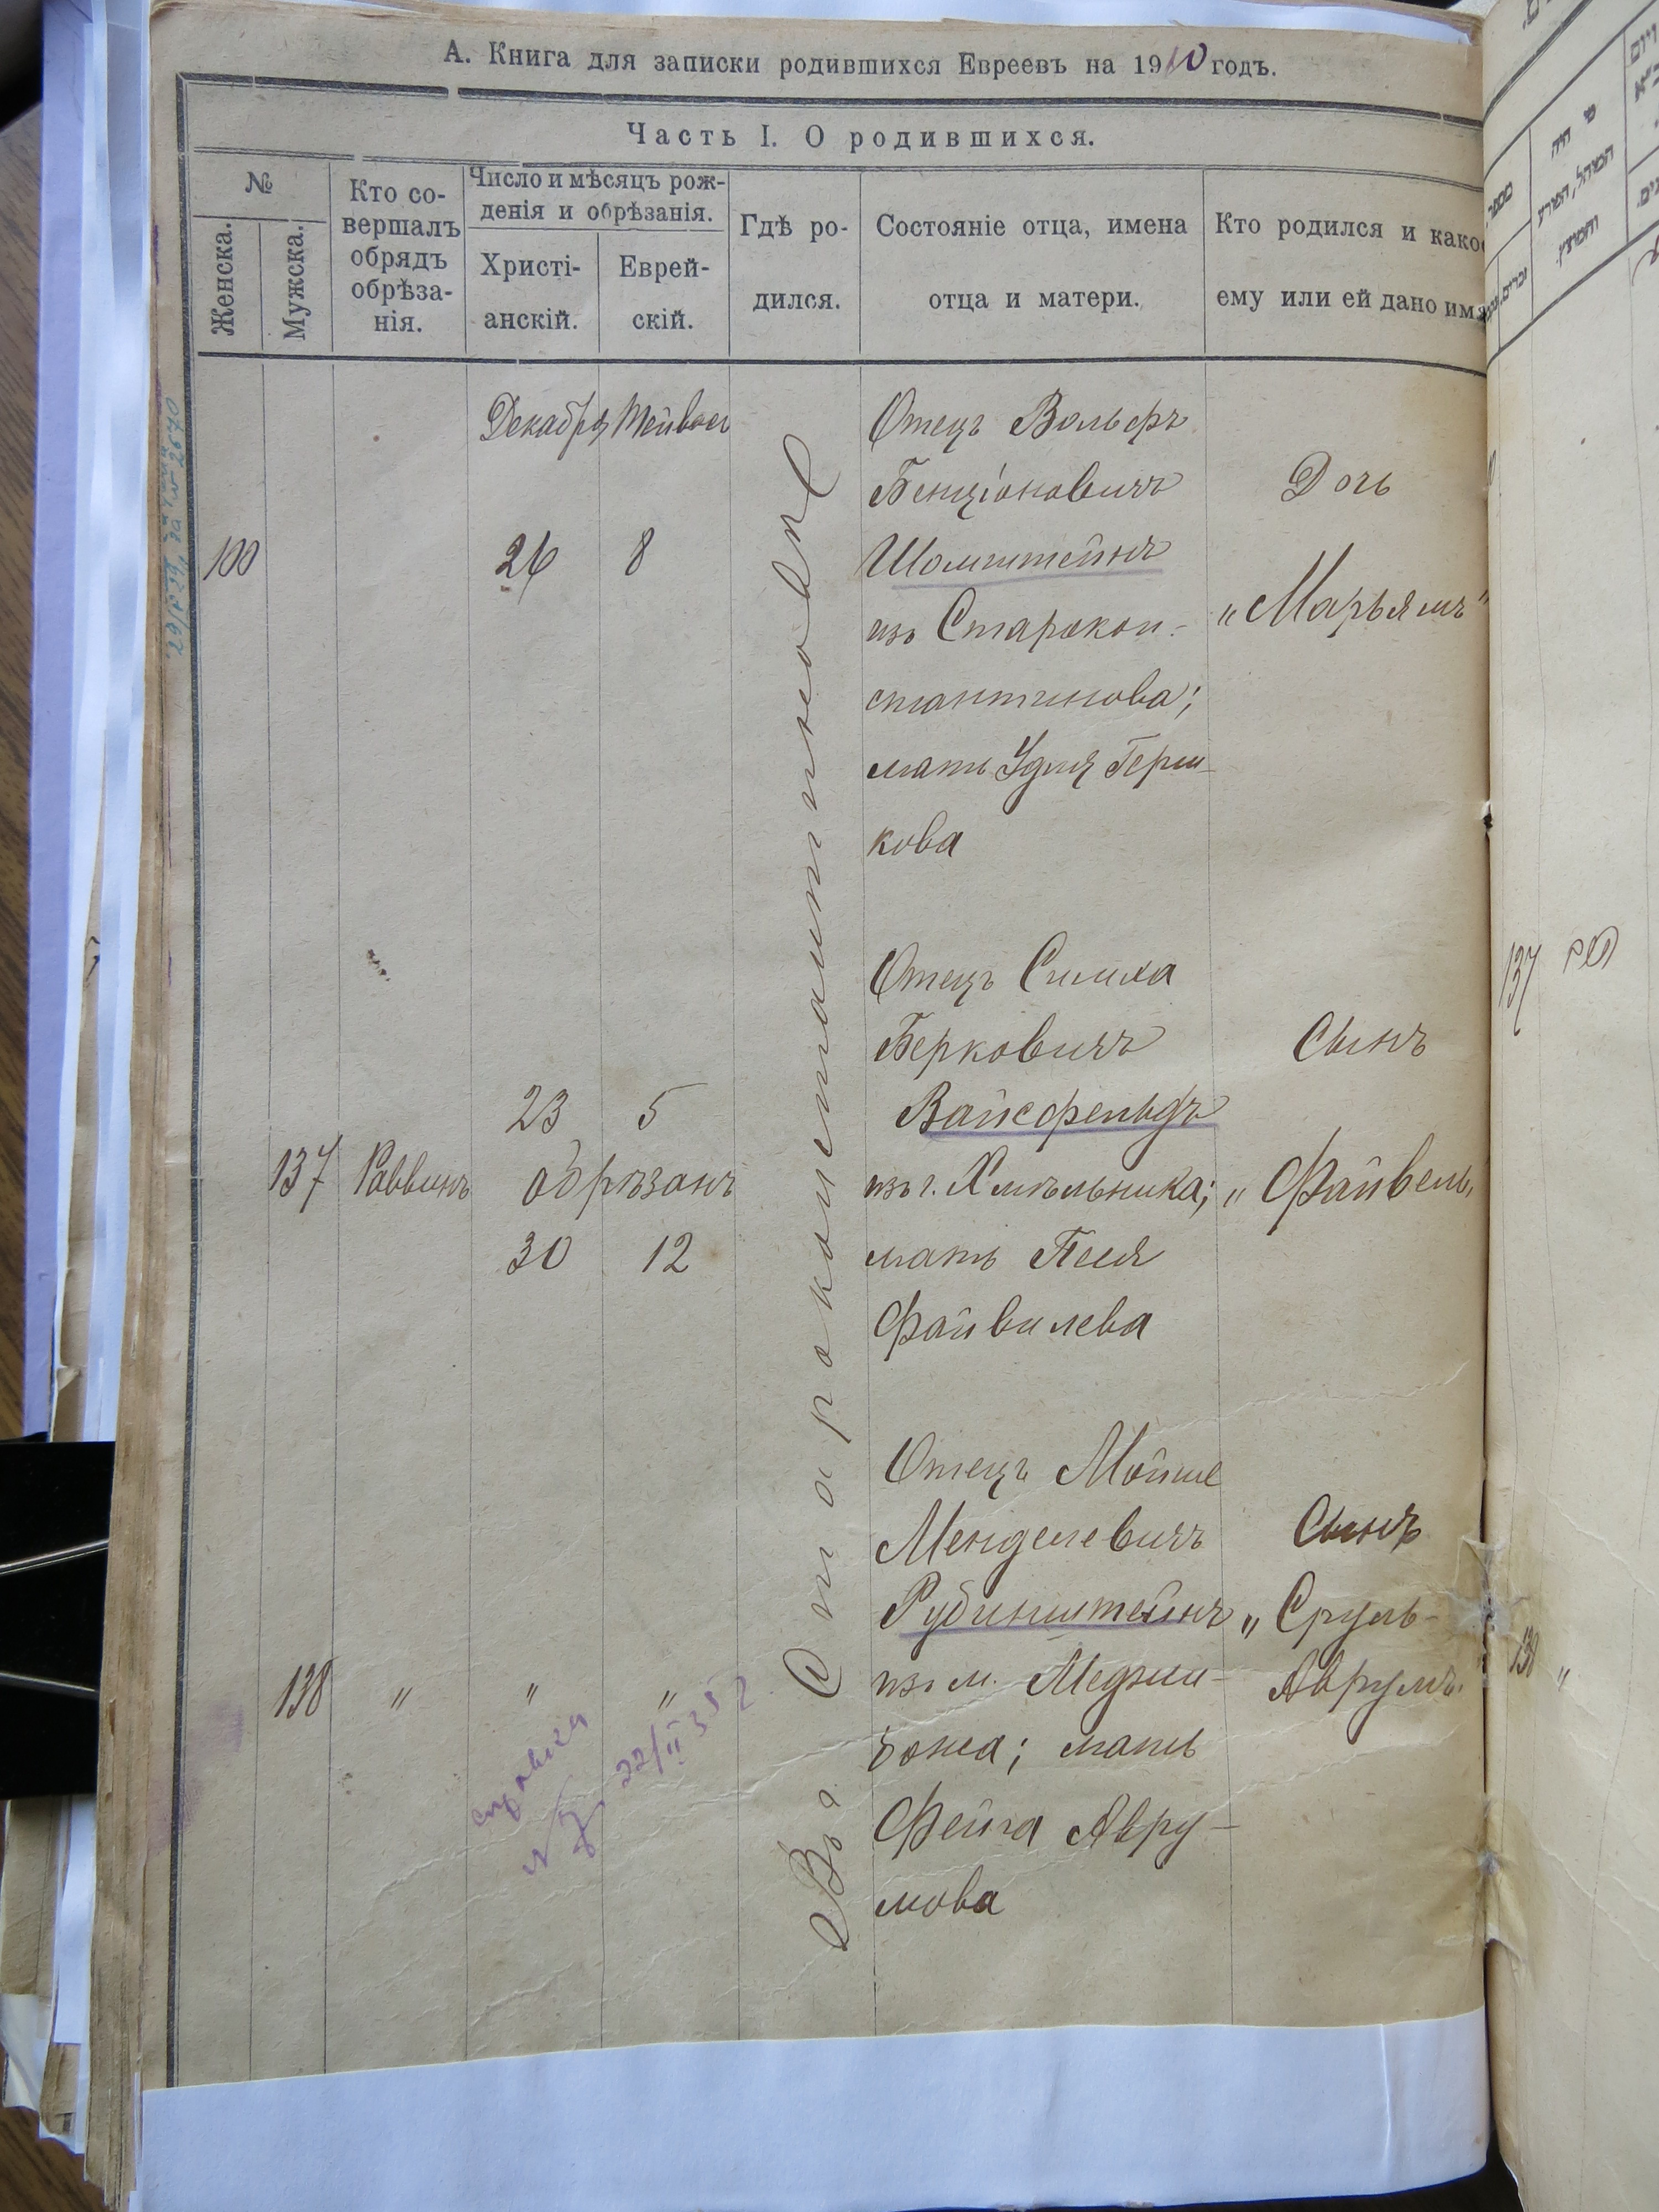 А. Книга для записки родившихся Евреевъ на 1910 годъ.
Часть I. О родившихся.
№
Женска.
Мужска.
Кто со-
вершалъ
обрядъ
обрѣза-
нія.
Число и мѣсяцъ рож-
денія и обрѣзанія.
Христі-
анскій.
Еврей-
скій.
Гдѣ ро-
дился.
Состояніе отца, имена
отца и матери.
Кто родился и какое
ему или ей дано имя
Въ Староконстантиновѣ
100
Декабря
26
Тейвесъ
8
Отецъ Вольфъ
Бенціоновичъ
Шолмштейнъ
изъ Старокон-
стантинова;
мать Удля Герш-
кова
Дочь
„Марьямъ"
137
Раввинъ
23 5
обрѣзанъ
30 12
Отецъ Симха
Берковичъ
Вайсфельдъ
изъ г. Хмѣльника;
мать Песя
Файвилева
Сынъ
„Файвель"
138
" " "
Отецъ Мойше
Менделевичъ
Рубинштейнъ
изъ м. Меджи-
божа; мать
Фейга Авру-
мова
Сынъ
„Сруль-
Аврумъ"
справка
22/II 35
137
138 "